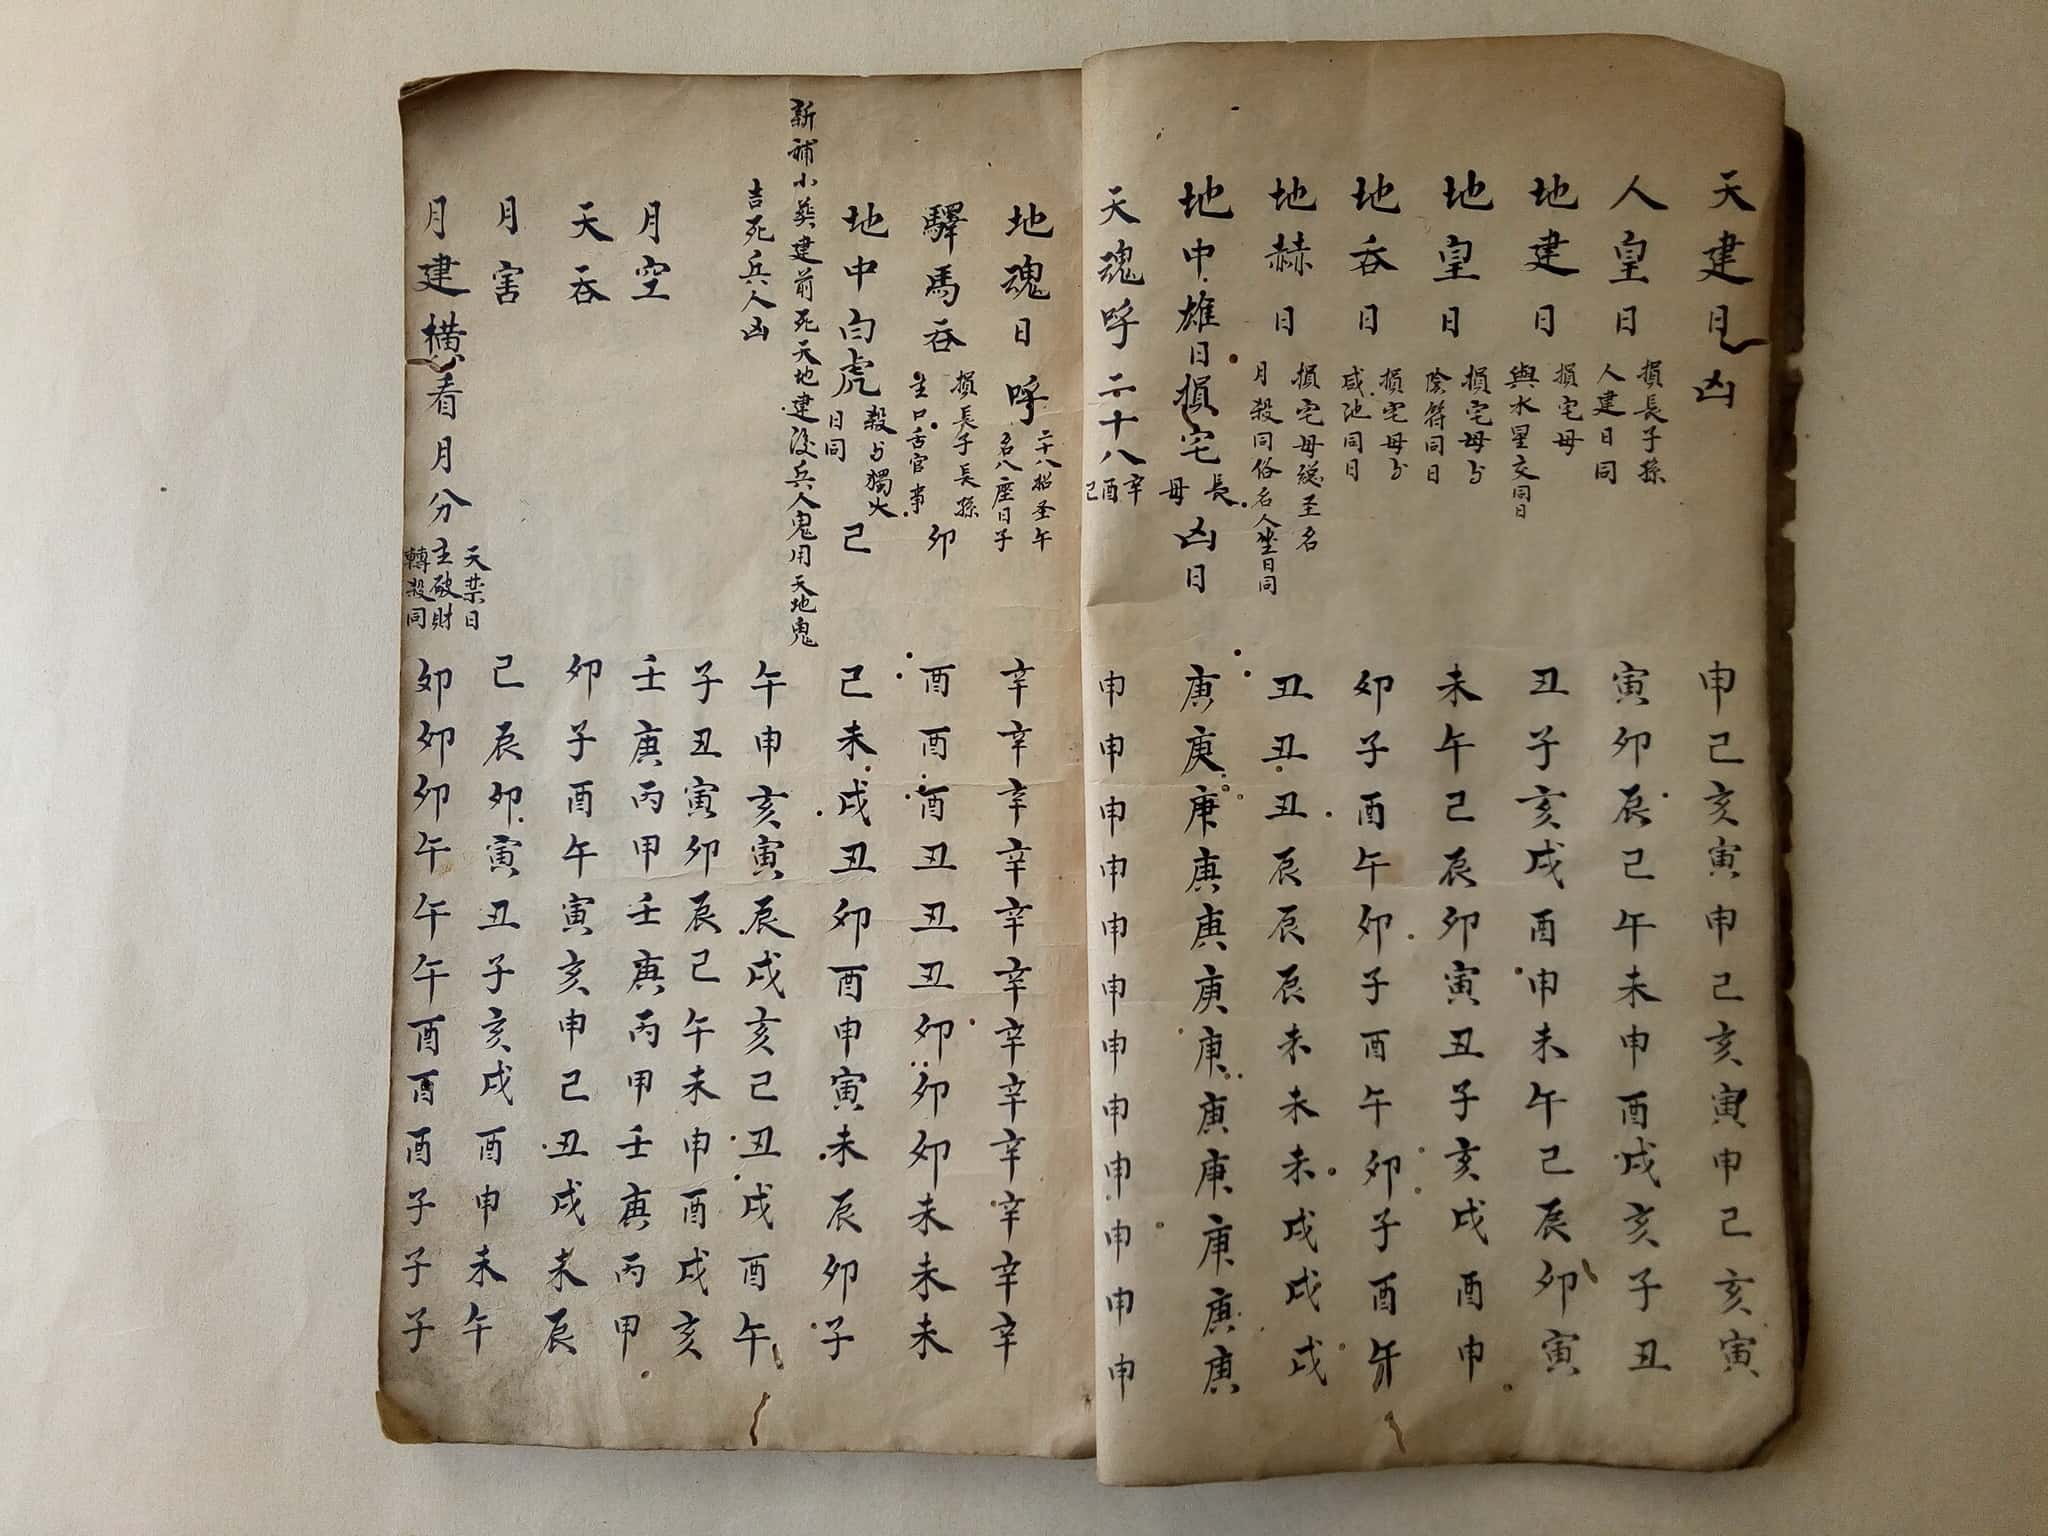 天建日凶 申己亥寅申己亥寅申己亥寅
人皇日 損長子孫 人建日同 寅卯辰己午未申酉戌亥子丑
地建日 損宅母 與水星交同日 丑子亥戌酉申未午己辰卯寅
地皇日 損宅母与 陰符同日 未午己辰卯寅丑子亥戌酉申
地呑日 損宅母与 咸池同日 卯子酉午卯子酉午卯子酉午
地赫日 損宅母総至名 月殺同俗名人坐日同 丑丑丑辰辰辰未未未戌戌戌
地中雄日損宅長母凶日 庚庚庚庚庚庚庚庚庚庚庚庚
天魂呼二十八辛酉己 申申申申申申申申申申申申
地魂日呼 二十八招圣午 名八座日子 辛辛辛辛辛辛辛辛辛辛辛辛
驛馬呑 損長子長孫 主口舌官事 卯 酉酉酉丑丑丑卯卯卯未未未
地中白虎 殺与獨火 日同 己 己未戌丑卯酉申寅未辰卯子
新補小葬建前死天地建後兵人鬼用天地鬼
吉死兵人凶 午申亥寅辰戌亥己丑戌酉午
子丑寅卯辰己午未申酉戌亥
月空 壬庚丙甲壬庚丙甲壬庚丙甲
天呑 卯子酉午寅亥申己丑戌未辰
月害 己辰卯寅丑子亥戌酉申未午
月建横看月分 天禁日 主破財 轉殺同 卯卯卯午午午酉酉酉子子子